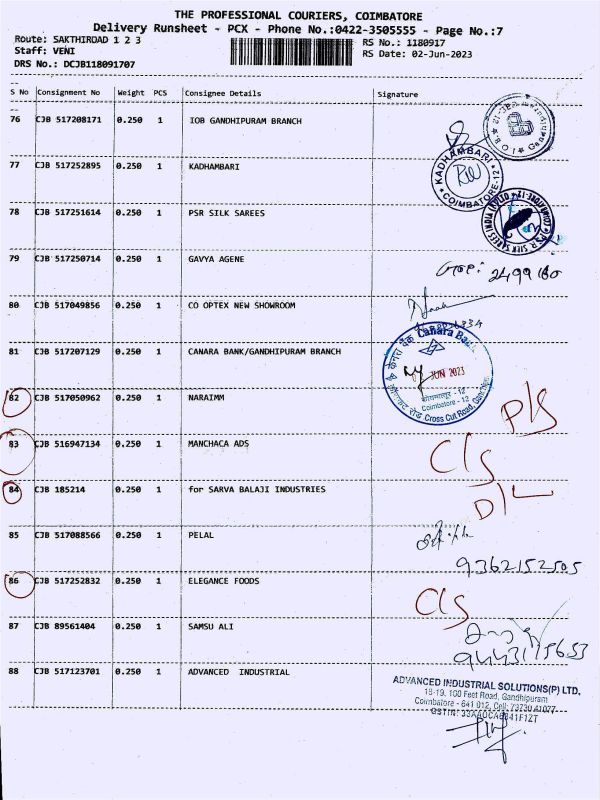 THE PROFESSIONAL COURIERS, COIMBATORE
Delivery Runsheet - PCX - Phone No.:0422-3505555 - Page No.:7
Route: SAKTHIROAD 1 2 3
RS No.: 1180917
Staff: VENI
RS Date: 02-Jun-2023
DRS No.: DCJB118091707
S No Consignment No Weight PCS Consignee Details Signature
76 CJB 517208171 0.250 1 IOB GANDHIPURAM BRANCH
77 CJB 517252895 0.250 1 KADHAMBARI
KADHAMBARI
COIMBATORE-12
78 CJB 517251614 0.250 1 PSR SILK SAREES
79 CJB 517250714 0.250 1 GAVYA AGENE
80 CJB 517049856 0.250 1 CO OPTEX NEW SHOWROOM
81 CJB 517207129 0.250 1 CANARA BANK/GANDHIPURAM BRANCH
Canara Bank
JUN 2023
Coimbatore - 12
Cross Cut Road,
82 CJB 517050962 0.250 1 NARAIMM
P/S
83 CJB 516947134 0.250 1 MANCHACA ADS
C/S
84 CJB 185214 0.250 1 for SARVA BALAJI INDUSTRIES
D/L
85 CJB 517088566 0.250 1 PELAL
9362152505
86 CJB 517252832 0.250 1 ELEGANCE FOODS
C/S
87 CJB 89561404 0.250 1 SAMSU ALI
88 CJB 517123701 0.250 1 ADVANCED INDUSTRIAL
ADVANCED INDUSTRIAL SOLUTIONS(P) LTD.
18-19, 100 Feet Road, Gandhipuram
Coimbatore - 641 012, Cell: 73730 41077